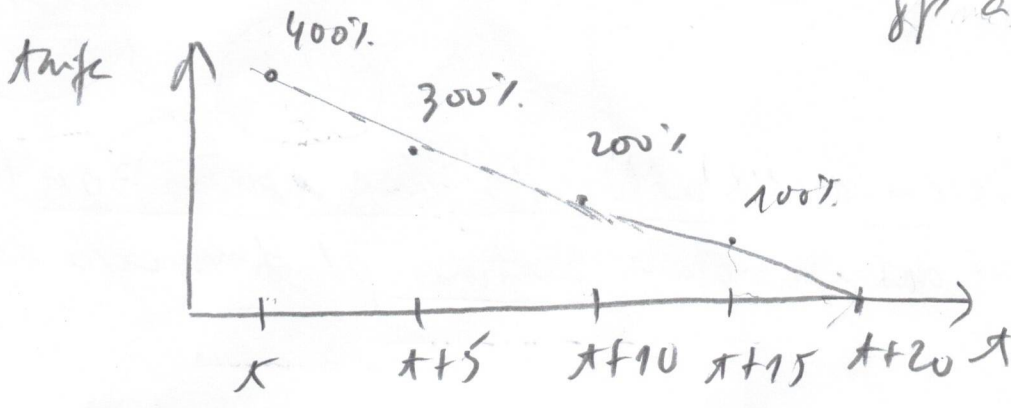 400%
300%
200%
100%
t
t+5
t+10 t+15 t+20 t